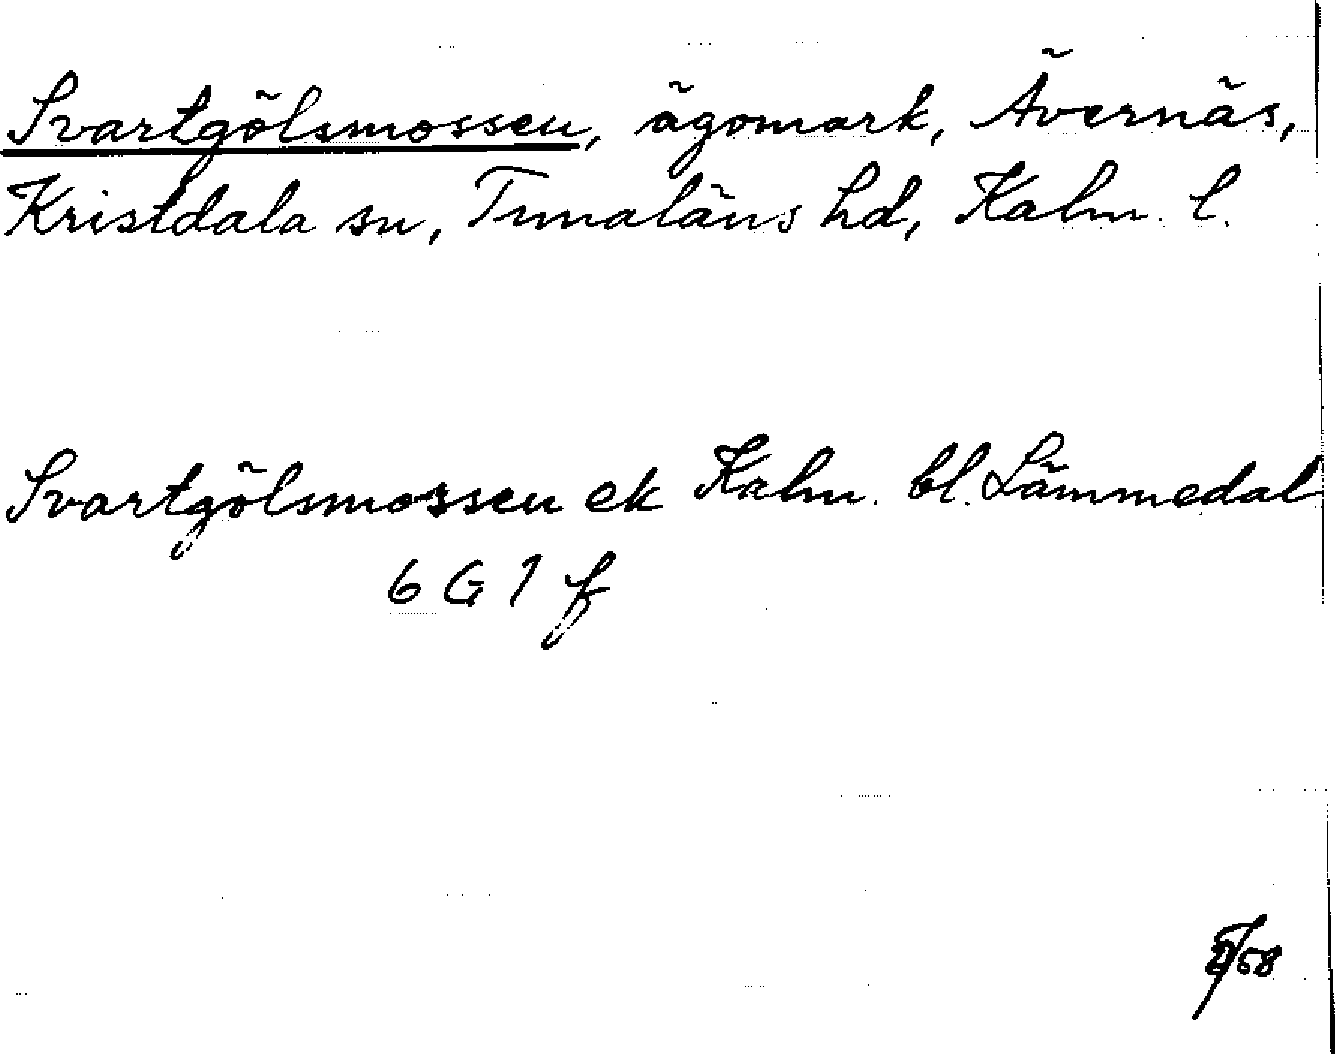 Svartgölsmossen, ägomark, Ävernäs,
Kristdala sn, Tunaläns hd, Kalm. l.
Svartgölsmossen ek Kalm. bl. Lämmedal
6 G 1 f